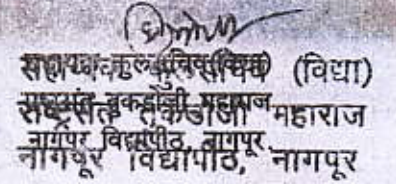 सहाय्यक कुलसचिव (विद्या)
राष्ट्रसंत तुकडोजी महाराज
नागपूर विद्यापीठ, नागपूर